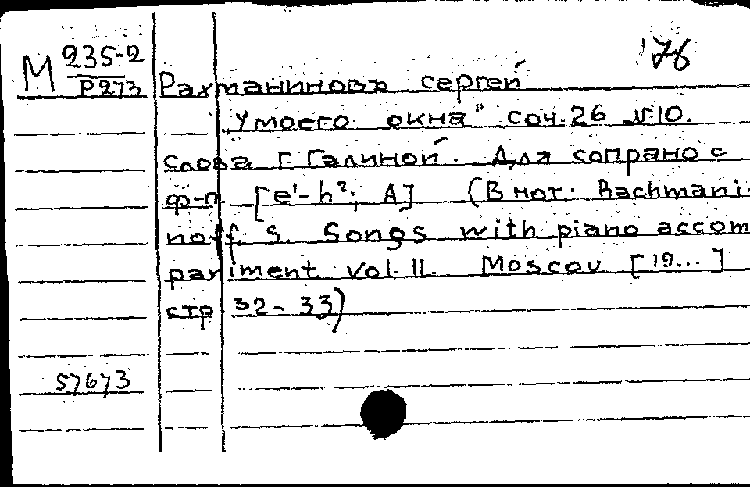 М 235-2 '76
Р273 Рахманиновъ сергей
"У моего окна" соч. 26 №10.
слова Г Галиной. Для сопрано с
ф-п [e'-h²; A] (В нот. Rachmani-
noff S. Songs with piano accom
pariment vol. II Moscou [19...]
стр 32-33)
57673